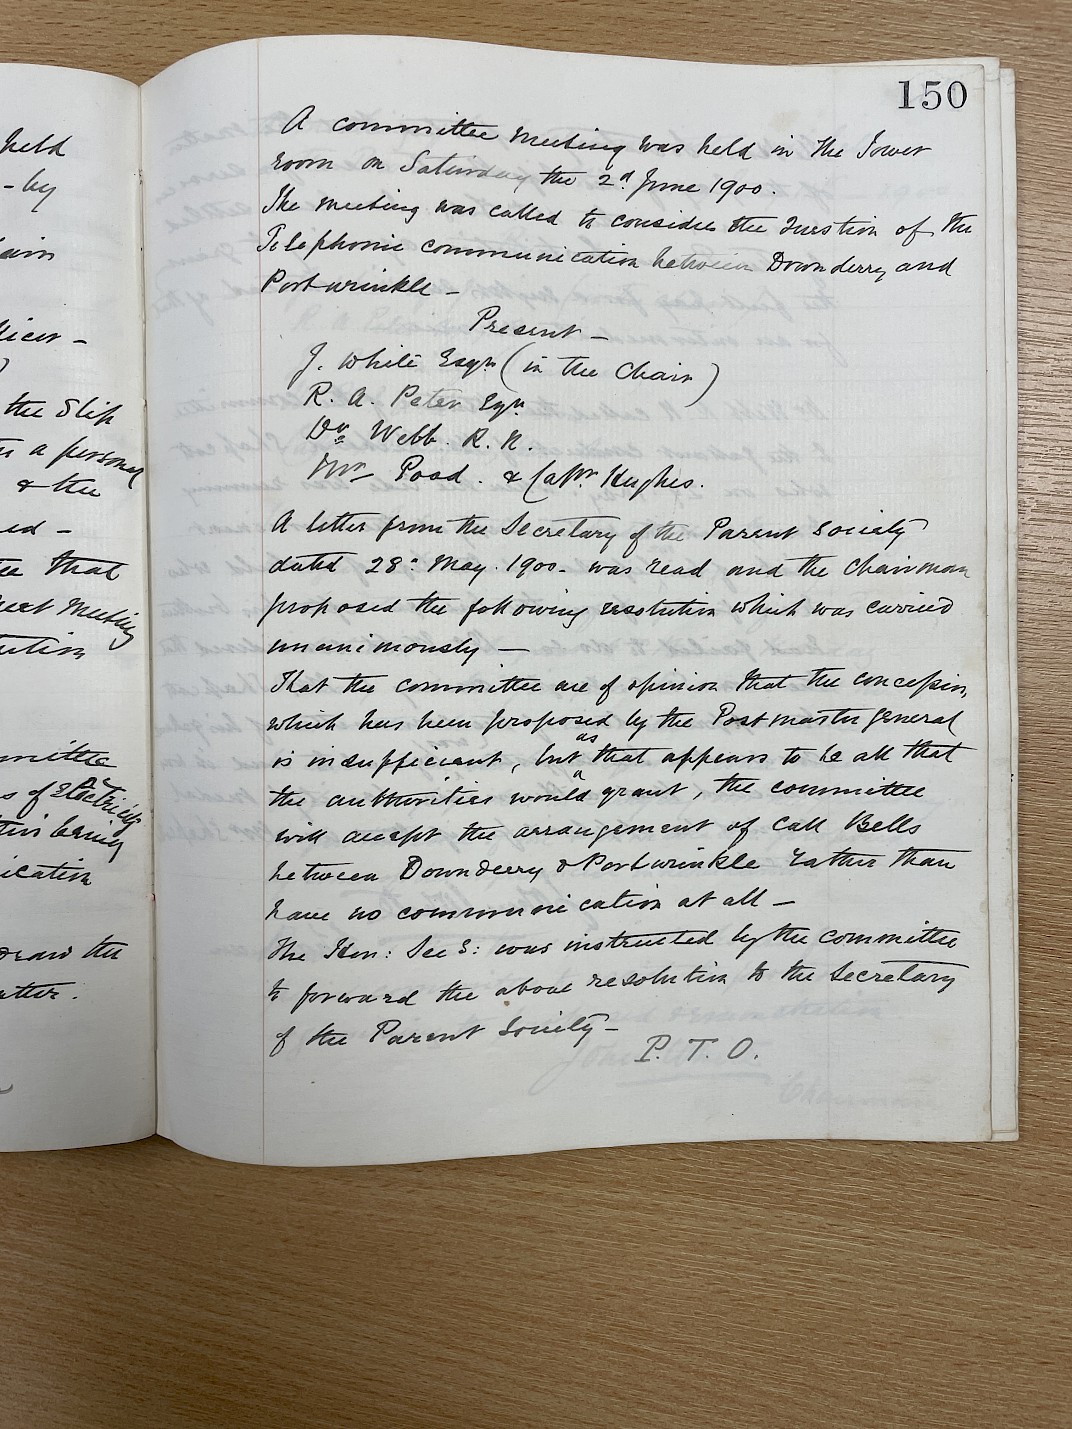 held
- by
the Slip
a personal
& the
ed -
that
meeting
of Electrical
being
ication
draw the
150
A committee meeting was held in the Tower
room on Saturday the 2d. June 1900.
The meeting was called to consider the Question of the
Telephonic communication between Downderry and
Portwrinkle -
Present -
J. White Esqr (in the Chair)
R. A. Peter Esqr
Dr. Webb. R. N.
Mr Poad. & Captn Hughes.
A letter from the Secretary of the Parent Society
dated 28: May. 1900 - was read and the Chairman
proposed the following resolution which was carried
unanimously -
That the committee are of opinion that the concession,
which has been proposed by the Postmaster general
is insufficient, but as that appears to be all that
the authorities would grant, the committee
will accept the arrangement of Call Bells
between Downderry & Portwrinkle rather than
have no communication at all -
The Hon: Sec S: was instructed by the committee
to forward the above resolution to the Secretary
of the Parent Society -
P. T. O.